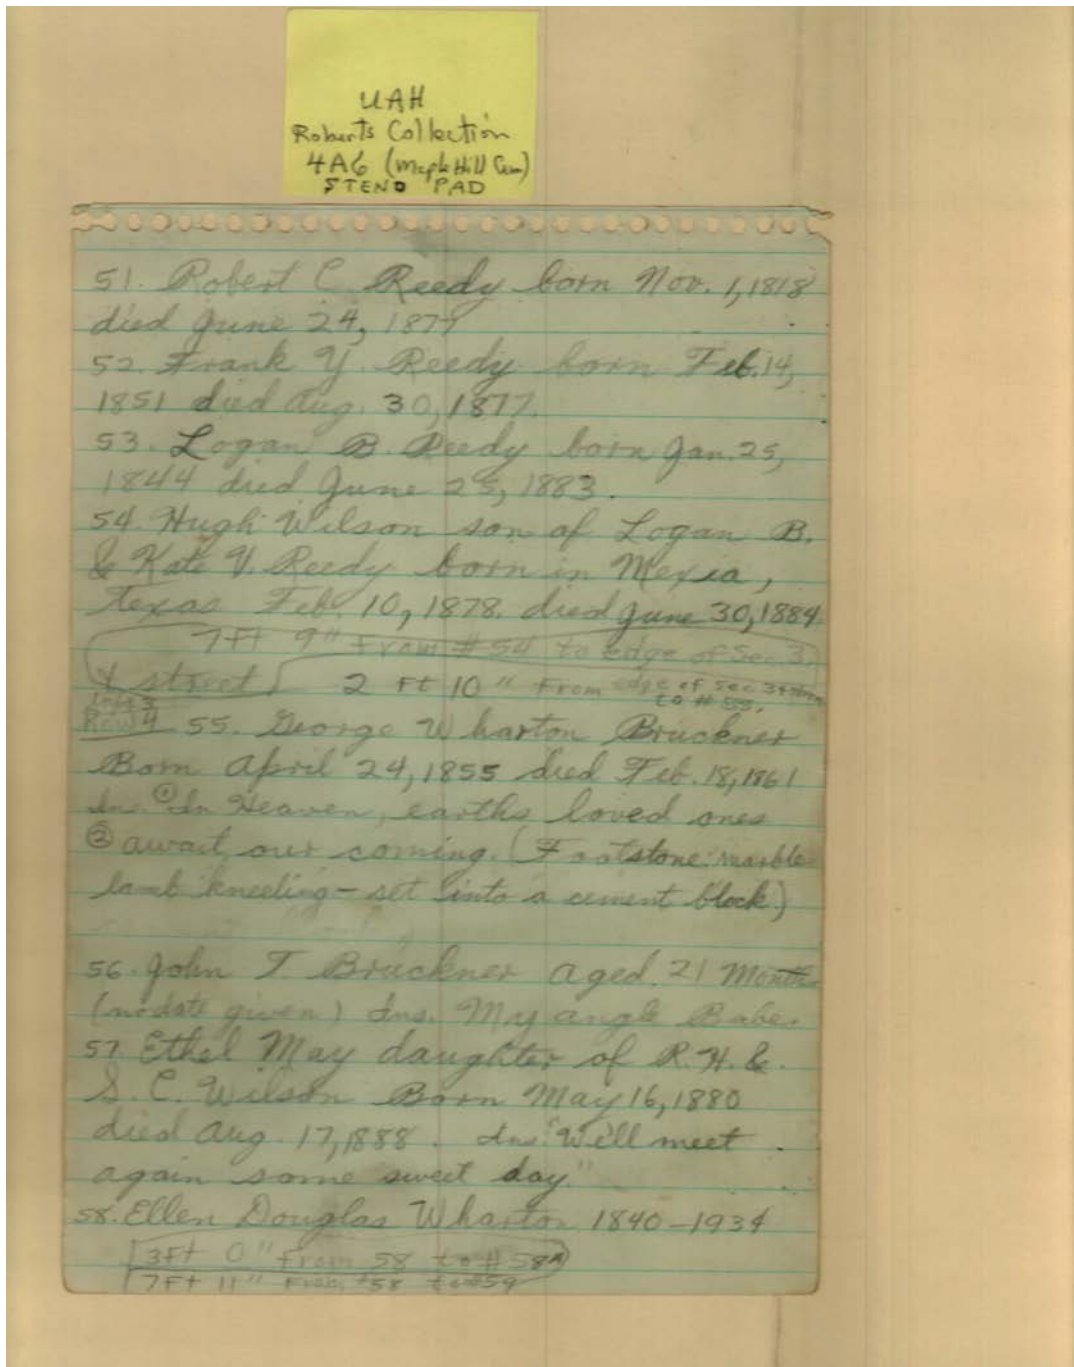 UAH
Roberts Collection
4A6 (Maple Hill Cem)
STENO PAD
51. Robert C. Reedy born Nov. 1, 1818
died June 24, 1879
52. Frank Y. Reedy born Feb. 14,
1851 died Aug. 30, 1877.
53. Logan B. Reedy born Jan. 25,
1844 died June 25, 1883.
54. Hugh Wilson son of Logan B.
& Kate V. Reedy born in Mexia,
Texas Feb. 10, 1878. died June 30, 1884
7 Ft 9" From #54 to edge of Sec 3
& street 2 Ft 10" From edge of Sec 3
to #55.
Row 4 55. George Wharton Bruckner
Born April 24, 1855 died Feb. 18, 1861
Ins. ① In Heaven, earths loved ones
② await our coming. (Footstone: marble
lamb kneeling - set into a cement block)
56. John T Bruckner aged 21 Months
(no date given) Ins. My angle Babe.
57. Ethel May daughter of R. H. &
S. C. Wilson Born May 16, 1880
died Aug. 17, 1888. Ins. "We'll meet
again some sweet day"
58. Ellen Douglas Wharton 1840-1934
3 Ft 0" From 58 to # 58A
7 Ft 11" From #58 to #59